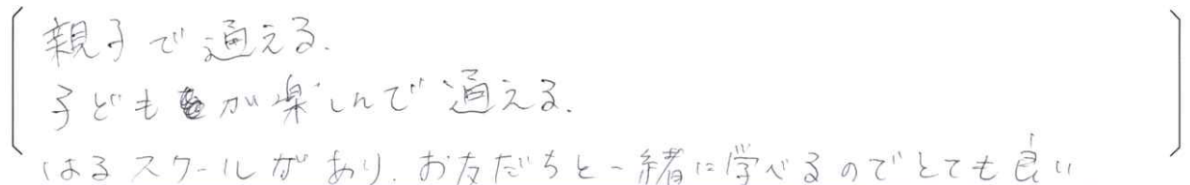 親子で通える.
子どもが楽しんで通える.
はるスクールがあり.お友だちと一緒に学べるのでとても良い